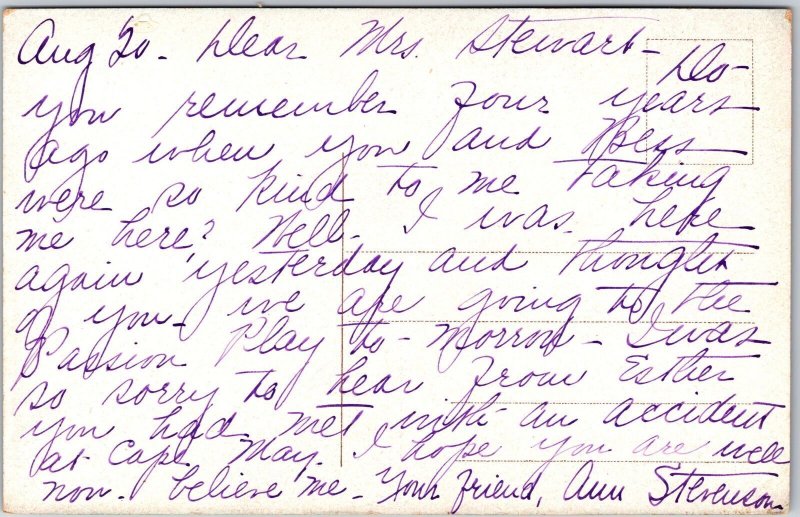 Aug 20 - Dear Mrs. Stewart - Do
you remember four years
ago when you and Bess
were so kind to me taking
me here? Well - I was here
again yesterday and thought
of you - we are going to the
Passion Play to-morrow - I was
so sorry to hear from Esther
you had met with an accident
at Cape May. I hope you are well
now. Believe me - Your friend, Ann Stevenson